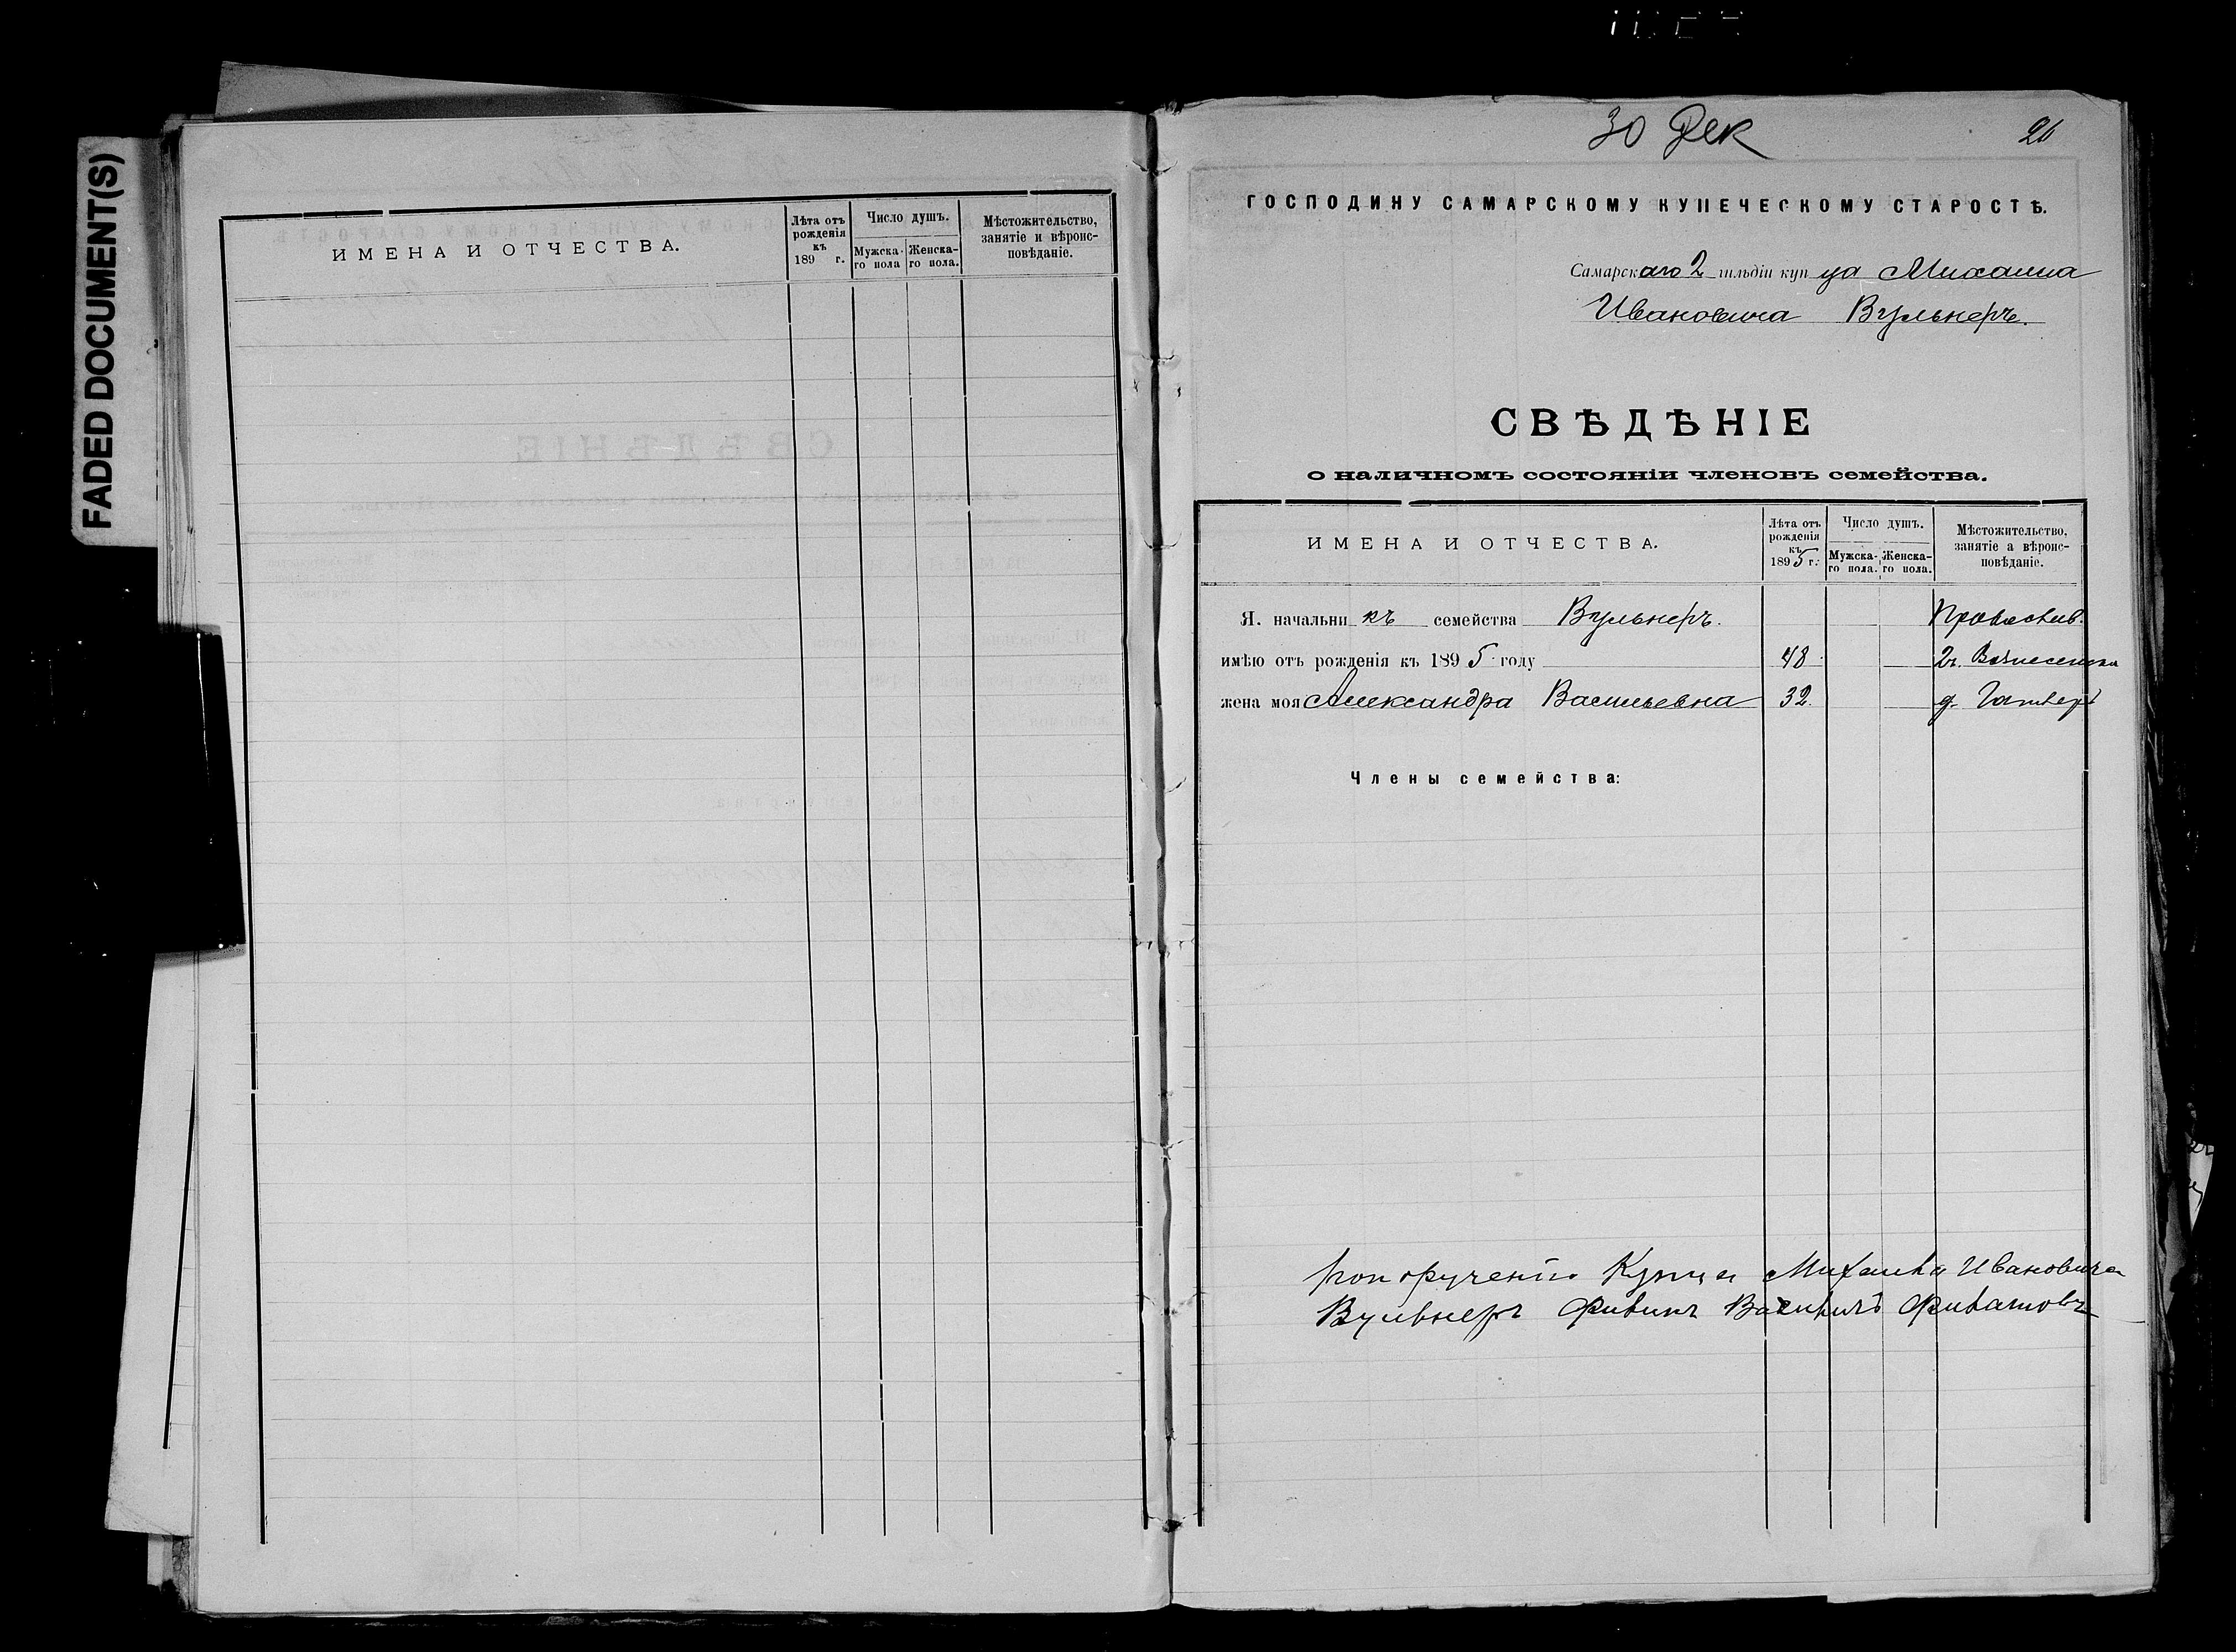 FADED DOCUMENT(S)
ИМЕНА И ОТЧЕСТВА.
Лѣта отъ рожденія къ 189 г.
Число душъ.
Мужска-го пола
Женска-го пола.
Мѣстожительство, занятіе и вѣроис-повѣданіе.
30 Дек
26
ГОСПОДИНУ САМАРСКОМУ КУПЕЧЕСКОМУ СТАРОСТѢ.
Самарскаго 2 гильдіи купца Михаила
Ивановича Вульнеръ.
СВѢДѢНІЕ
о наличномъ состояніи членовъ семейства.
ИМЕНА И ОТЧЕСТВА.
Лѣта отъ рожденія къ 1895 г.
Число душъ.
Мужска-го пола.
Женска-го пола.
Мѣстожительство, занятіе а вѣроис-повѣданіе.
Я. начальникъ семейства Вульнеръ. Православ.
имѣю отъ рожденія къ 1895 году 48
жена моя Александра Васильевна 32. д.
Члены семейства:
Купца Михаила Ивановича
Вульнеръ Филатовъ